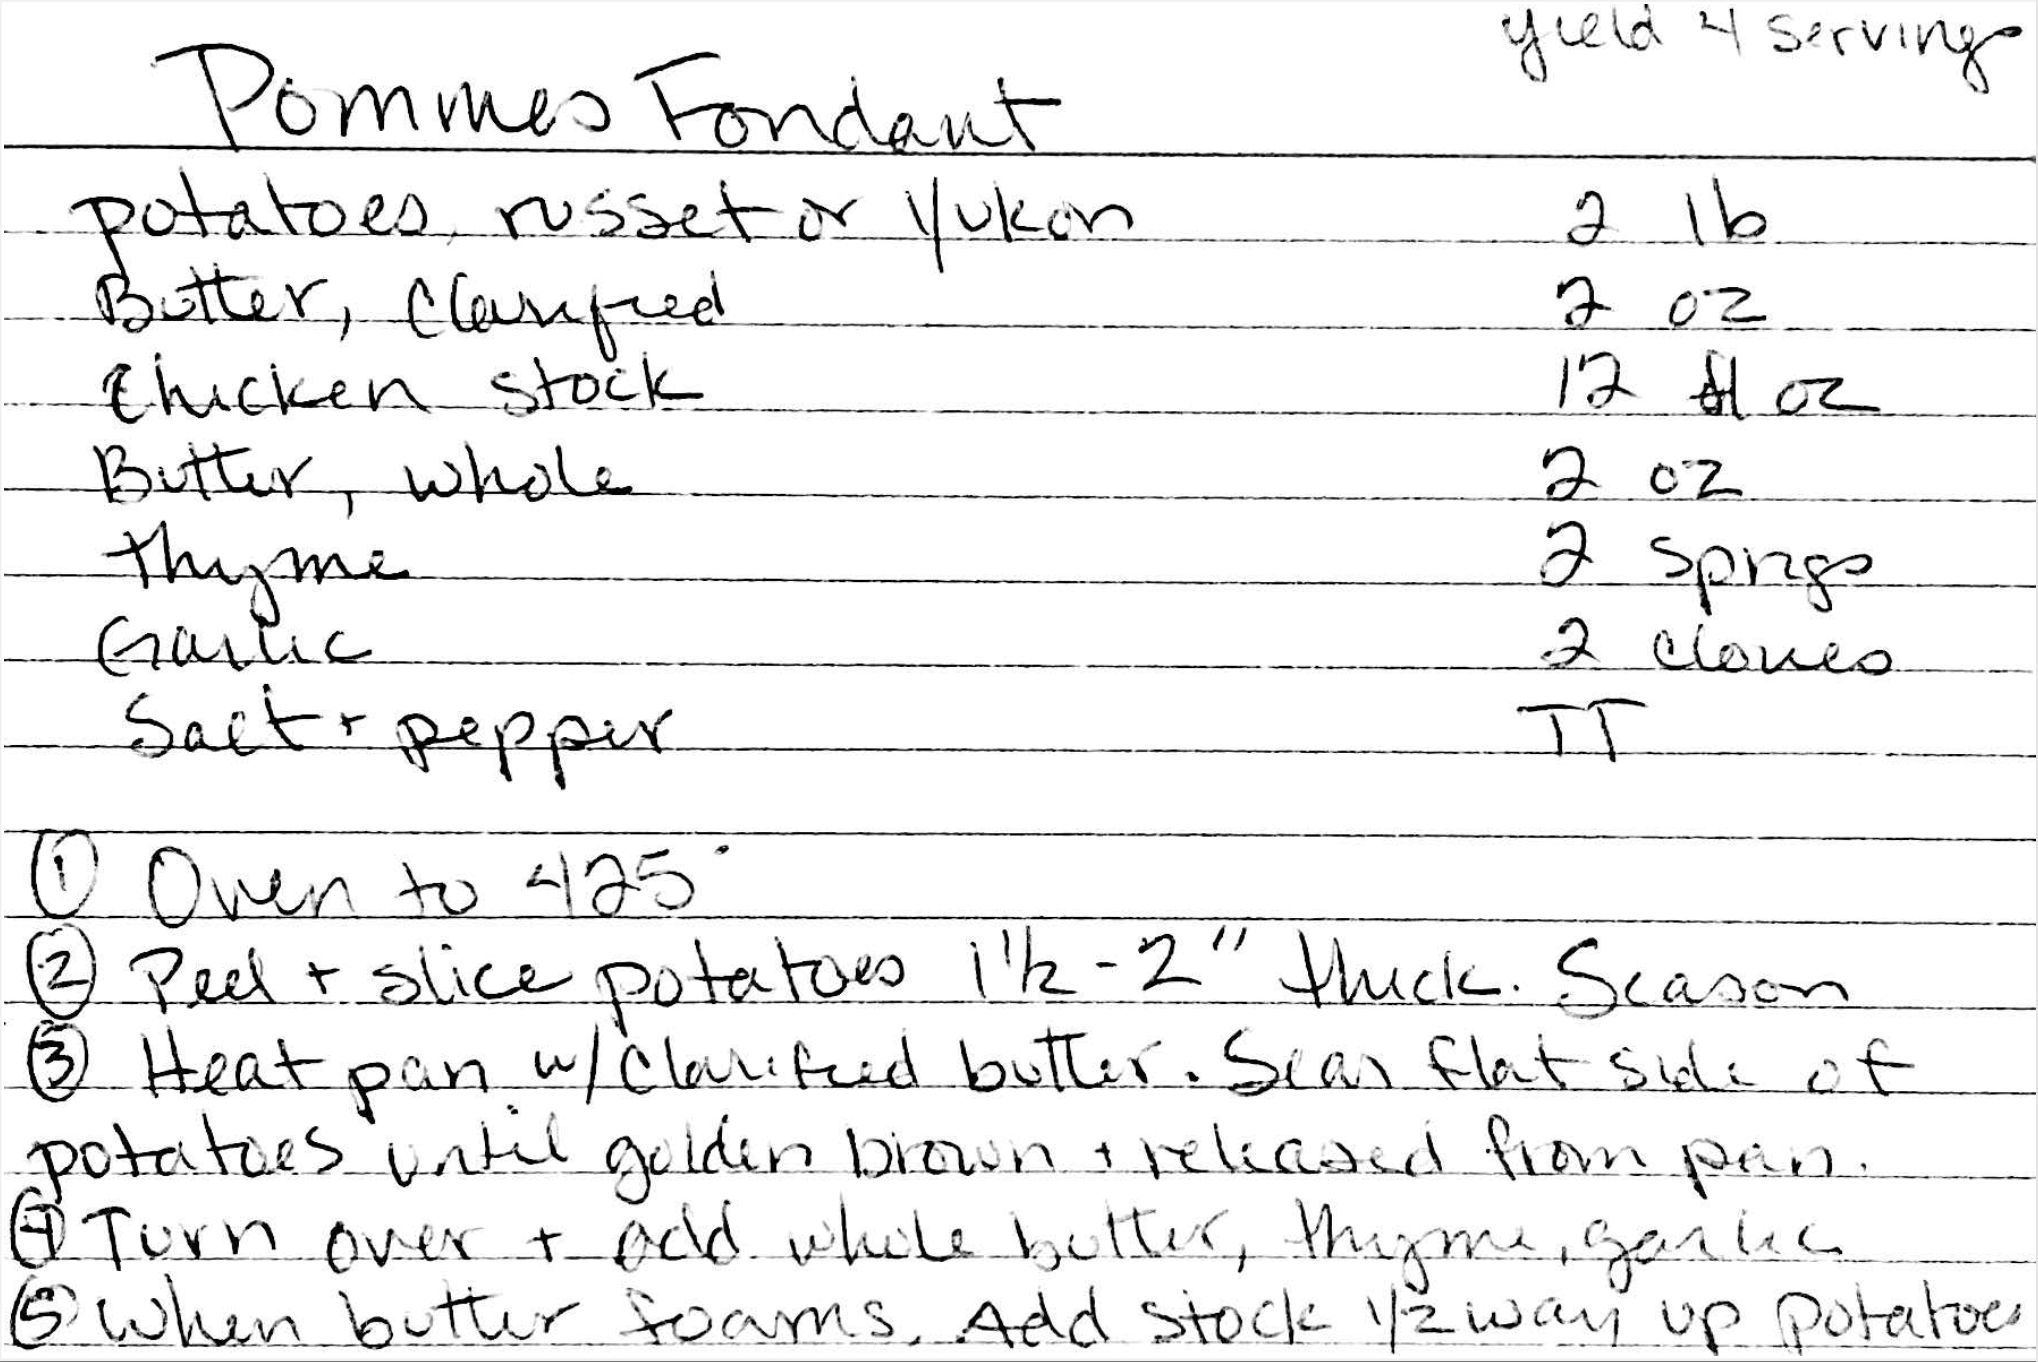 yield 4 servings
Pommes Fondant
potatoes, russet or Yukon 2 lb
Butter, Clarified 2 oz
Chicken stock 12 fl oz
Butter, whole 2 oz
thyme 2 sprigs
Garlic 2 cloves
Salt + pepper TT
① Oven to 425°
② Peel + slice potatoes 1½-2" thick. Season
③ Heat pan w/ Clarified butter. Sear flat side of
potatoes until golden brown + released from pan.
④ Turn over + add whole butter, thyme, garlic
⑤ When butter foams. Add stock 1/2 way up potatoes